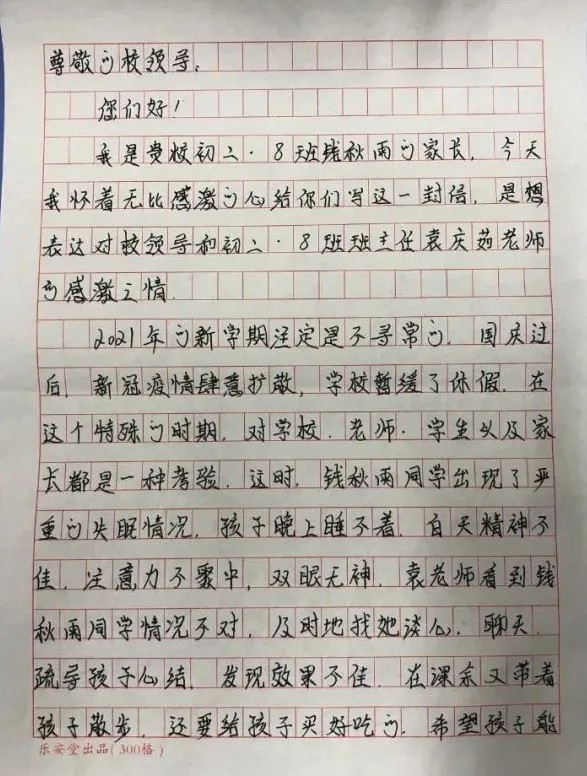 尊敬的校领导：
您们好！
我是贵校初二·8班钱秋雨的家长，今天
我怀着无比感激的心给你们写这一封信，是想
表达对校领导和初二·8班班主任袁庆茹老师
的感激之情.
2021年的新学期注定是不寻常的，国庆过
后，新冠疫情肆意扩散，学校暂缓了休假.在
这个特殊的时期，对学校.老师.学生以及家
长都是一种考验.这时，钱秋雨同学出现了严
重的失眠情况，孩子晚上睡不着，白天精神不
佳，注意力不聚中，双眼无神.袁老师看到钱
秋雨同学情况不对，及时地找她谈心，聊天，
疏导孩子心结.发现效果不佳.在课余又带着
孩子散步，还要给孩子买好吃的，希望孩子能
乐安堂出品(300格)